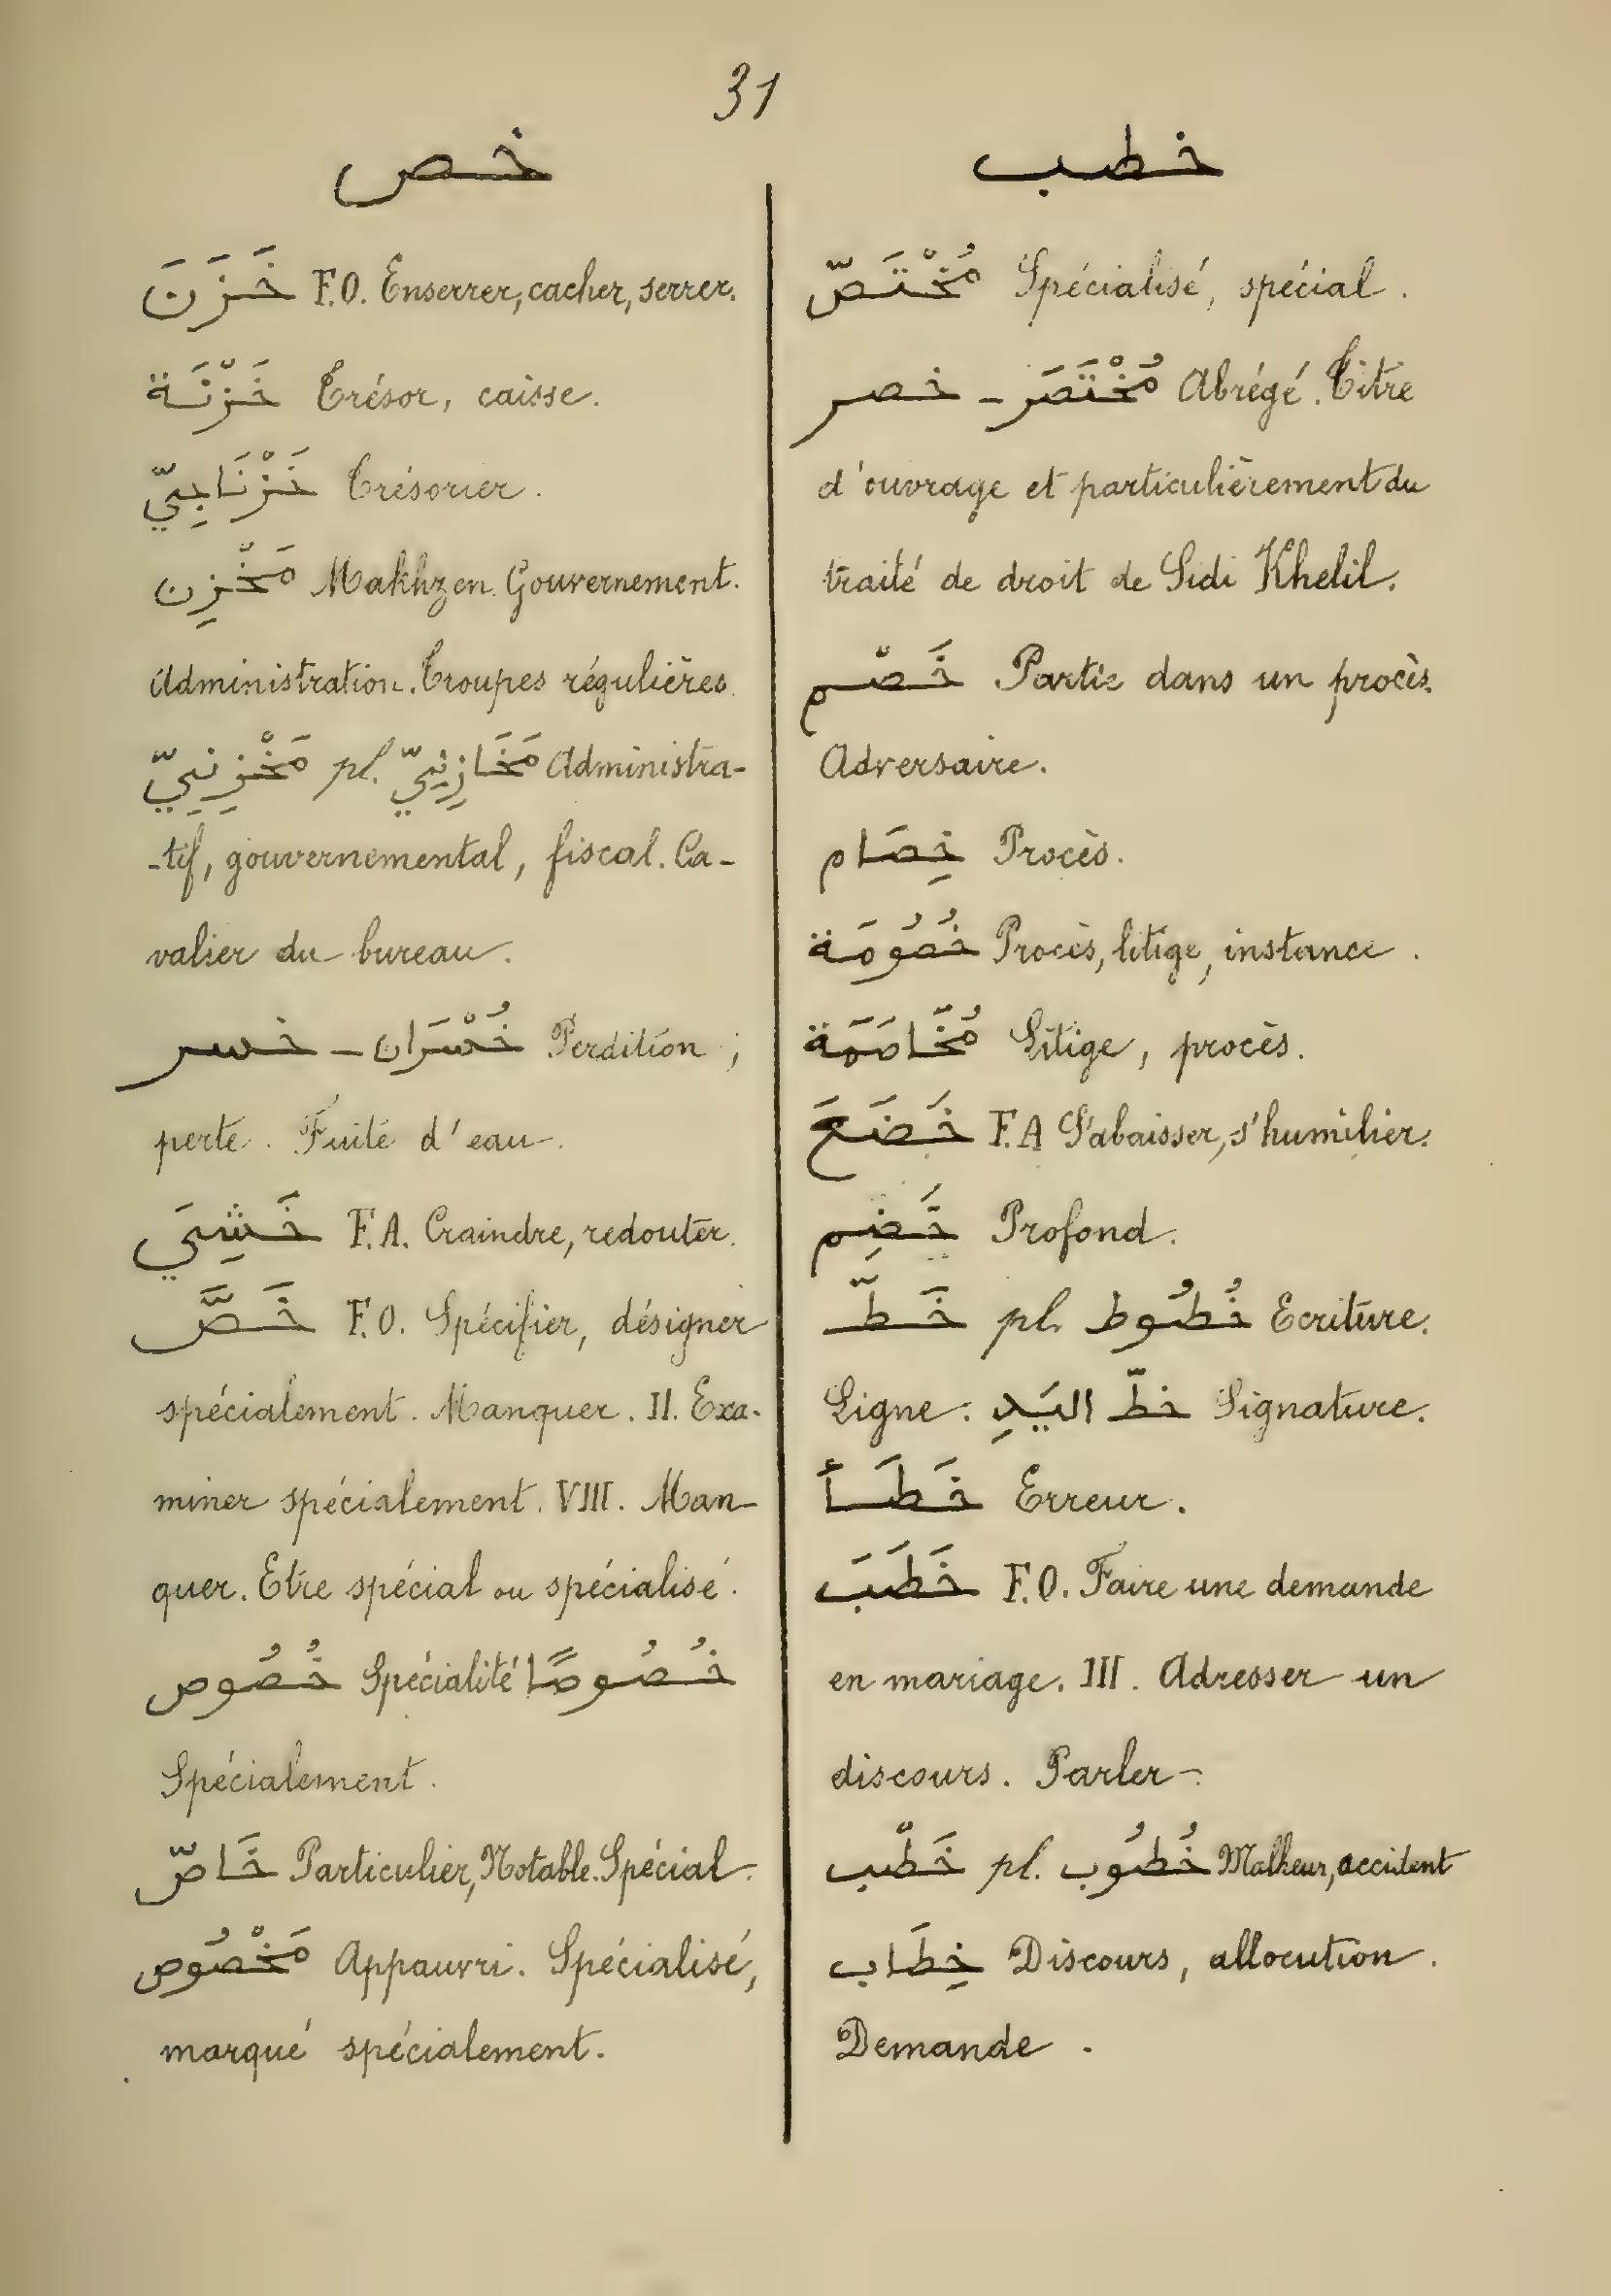 31
خص
خَزَنَ F.O. Enserrer, cacher, serrer.
خَزْنَة Trésor, caisse.
خَزْنَاجِيّ Trésorier.
مَخْزِن Makhzen. Gouvernement.
Administration. Troupes régulières.
مَخْزِنِيّ pl. مَخَازِنِيّ Administra-
-tif, gouvernemental, fiscal. Ca-
valier du bureau.
خسر – خُسْرَان Perdition;
perte. Fuite d'eau.
خَشِيَ F.A. Craindre, redouter.
خَصَّ F.O. Spécifier, désigner
spécialement. Manquer. II. Exa-
miner spécialement. VIII. Man-
quer. Etre spécial ou spécialisé.
خُصُوص Spécialité خُصُوصًا
Spécialement.
خَاصّ Particulier, Notable. Spécial.
مَخْصُوص Appauvri. Spécialisé,
marqué spécialement.
خطب
مُخْتَصّ Spécialisé, spécial.
خصر – مُخْتَصَر Abrégé. Titre
d'ouvrage et particulièrement du
traité de droit de Sidi Khelil.
خَصْم Partie dans un procès.
Adversaire.
خِصَام Procès.
خُصُومَة Procès, litige, instance.
مُخَاصَمَة Litige, procès.
خَضَعَ F.A S'abaisser, s'humilier.
خَضِم Profond.
خَطّ pl. خُطُوط Ecriture.
Ligne. خطّ اليَدِ Signature.
خَطَأ Erreur.
خَطَبَ F.O. Faire une demande
en mariage. III. Adresser un
discours. Parler.
خَطْب pl. خُطُوب Malheur, accident
خِطَاب Discours, allocution.
Demande.